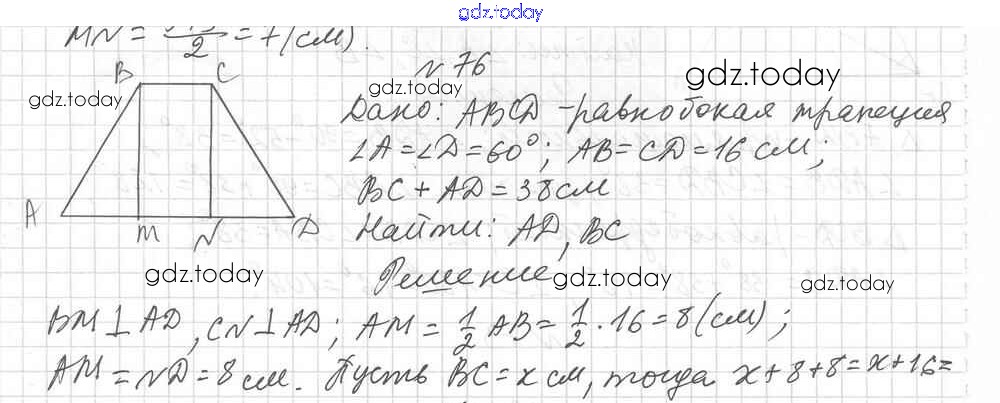 gdz.today
MN = 2 = 7 (см).
B C
A M N D
№ 76
gdz.today
gdz.today
gdz.today
Дано: ABCD - равнобокая трапеция
∠A = ∠D = 60°; AB = CD = 16 см;
BC + AD = 38 см
Найти: AD, BC
gdz.today
Решение
gdz.today
gdz.today
BM ⊥ AD, CN ⊥ AD; AM = 1/2 AB = 1/2 · 16 = 8 (см);
AM = ND = 8 см. Пусть BC = x см, тогда x + 8 + 8 = x + 16 =